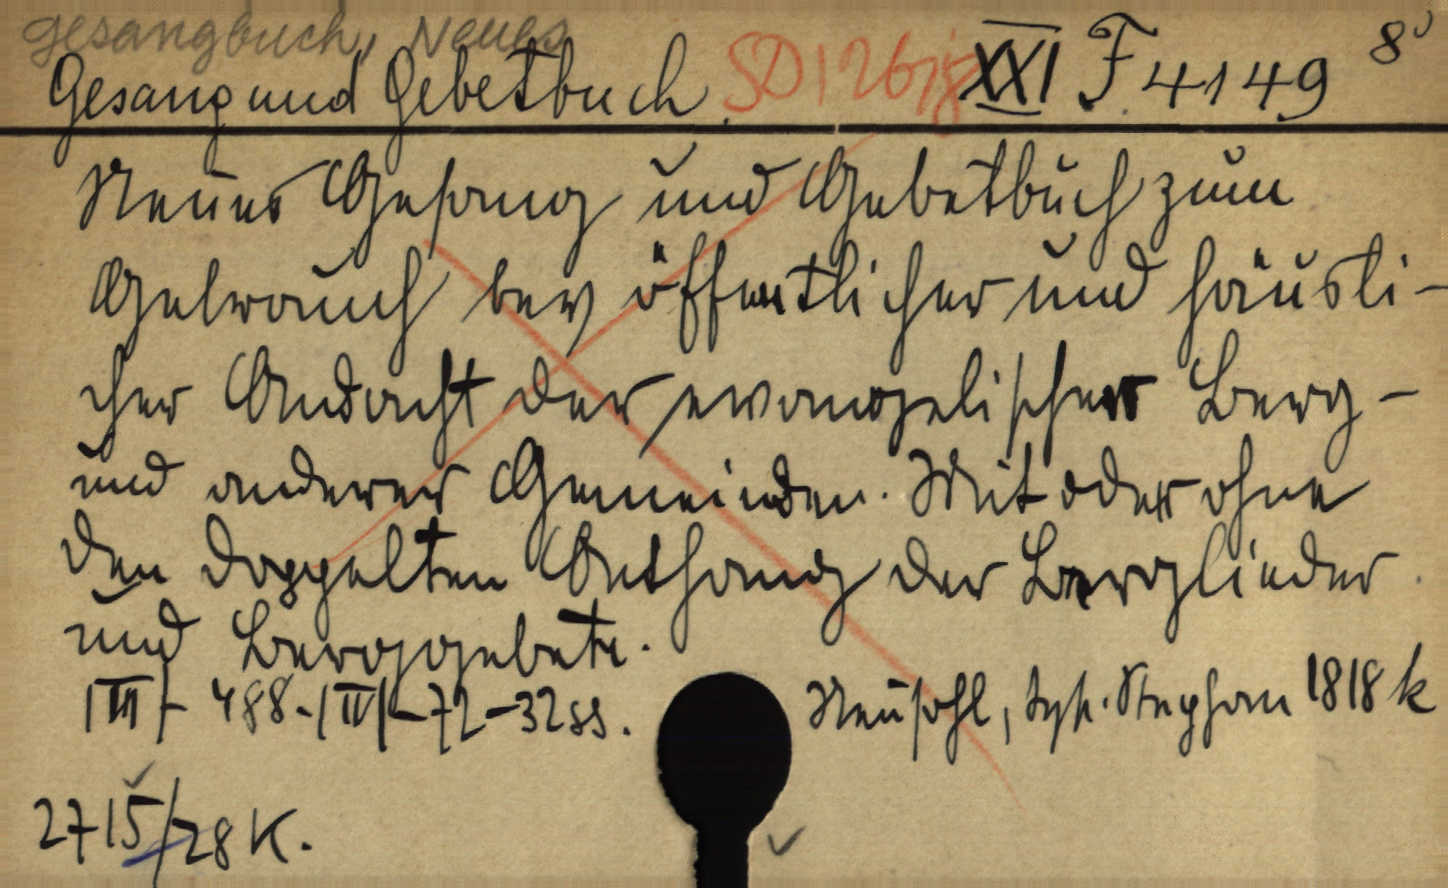 Gesangbuch, Neues
Gesang und Gebetbuch. SD 126 XXI F 4149 8°
Neues Gesang und Gebetbuch zum
Gebrauch bey öffentlicher und häusli-
cher Andacht der evangelischen Berg-
und anderer Gemeinden. Mit oder ohne
den doppelten Anhang der Berglieder
und Berggebete.
|III|- 488-|IV|-72-32 ss. Neusohl, typ. Stephani 1818 k
2715/28 K.